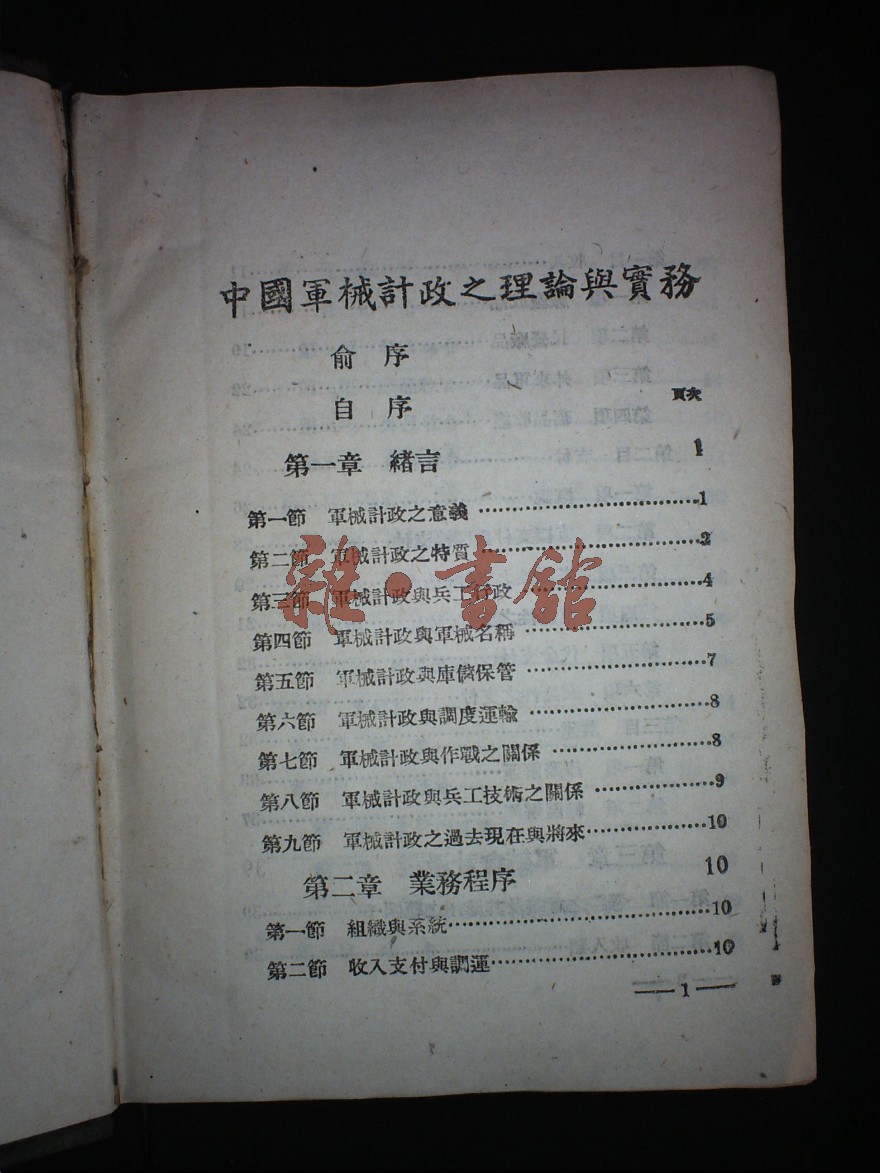 中國軍械計政之理論與實務
俞序
自序
頁次
第一章 緒言 1
第一節 軍械計政之意義……………………1
第二節 軍械計政之特質……………………2
第三節 軍械計政與兵工行政………………4
第四節 軍械計政與軍械名稱………………5
第五節 軍械計政與庫儲保管………………7
第六節 軍械計政與調度運輸………………8
第七節 軍械計政與作戰之關係……………8
第八節 軍械計政與兵工技術之關係………9
第九節 軍械計政之過去現在與將來………10
第二章 業務程序 10
第一節 組織與系統…………………………10
第二節 收入支付與調運……………………10
—1—
雜·書館